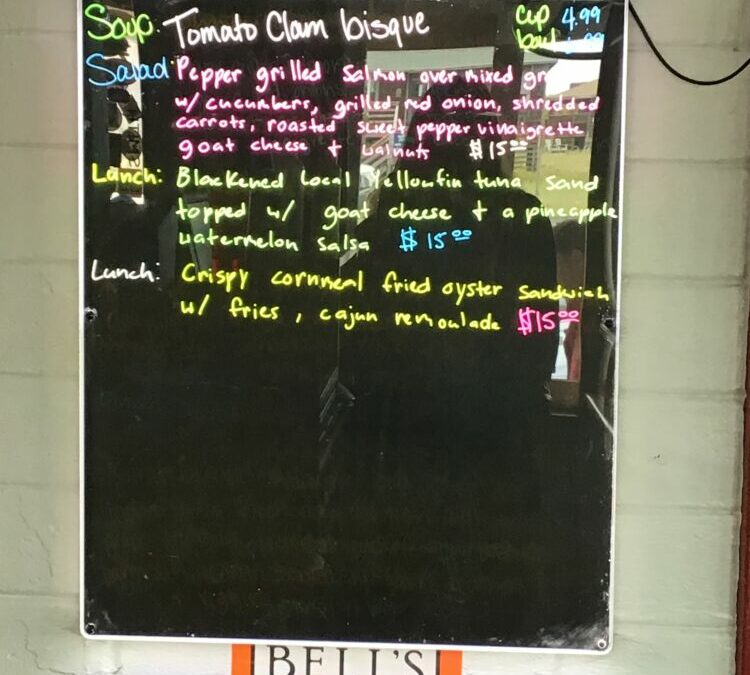 Soup: Tomato Clam bisque cup 4.99
bowl
Salad: Pepper grilled Salmon over mixed
w/ cucumbers, grilled red onion, shredded
carrots, roasted sweet pepper vinaigrette
goat cheese + walnuts $15.00
Lunch: Blackened Local Yellowfin tuna Sand
topped w/ goat cheese + a pineapple
watermelon salsa $15.00
Lunch: Crispy cornmeal fried oyster Sandwich
w/ fries, cajun remoulade $15.00
BELL'S